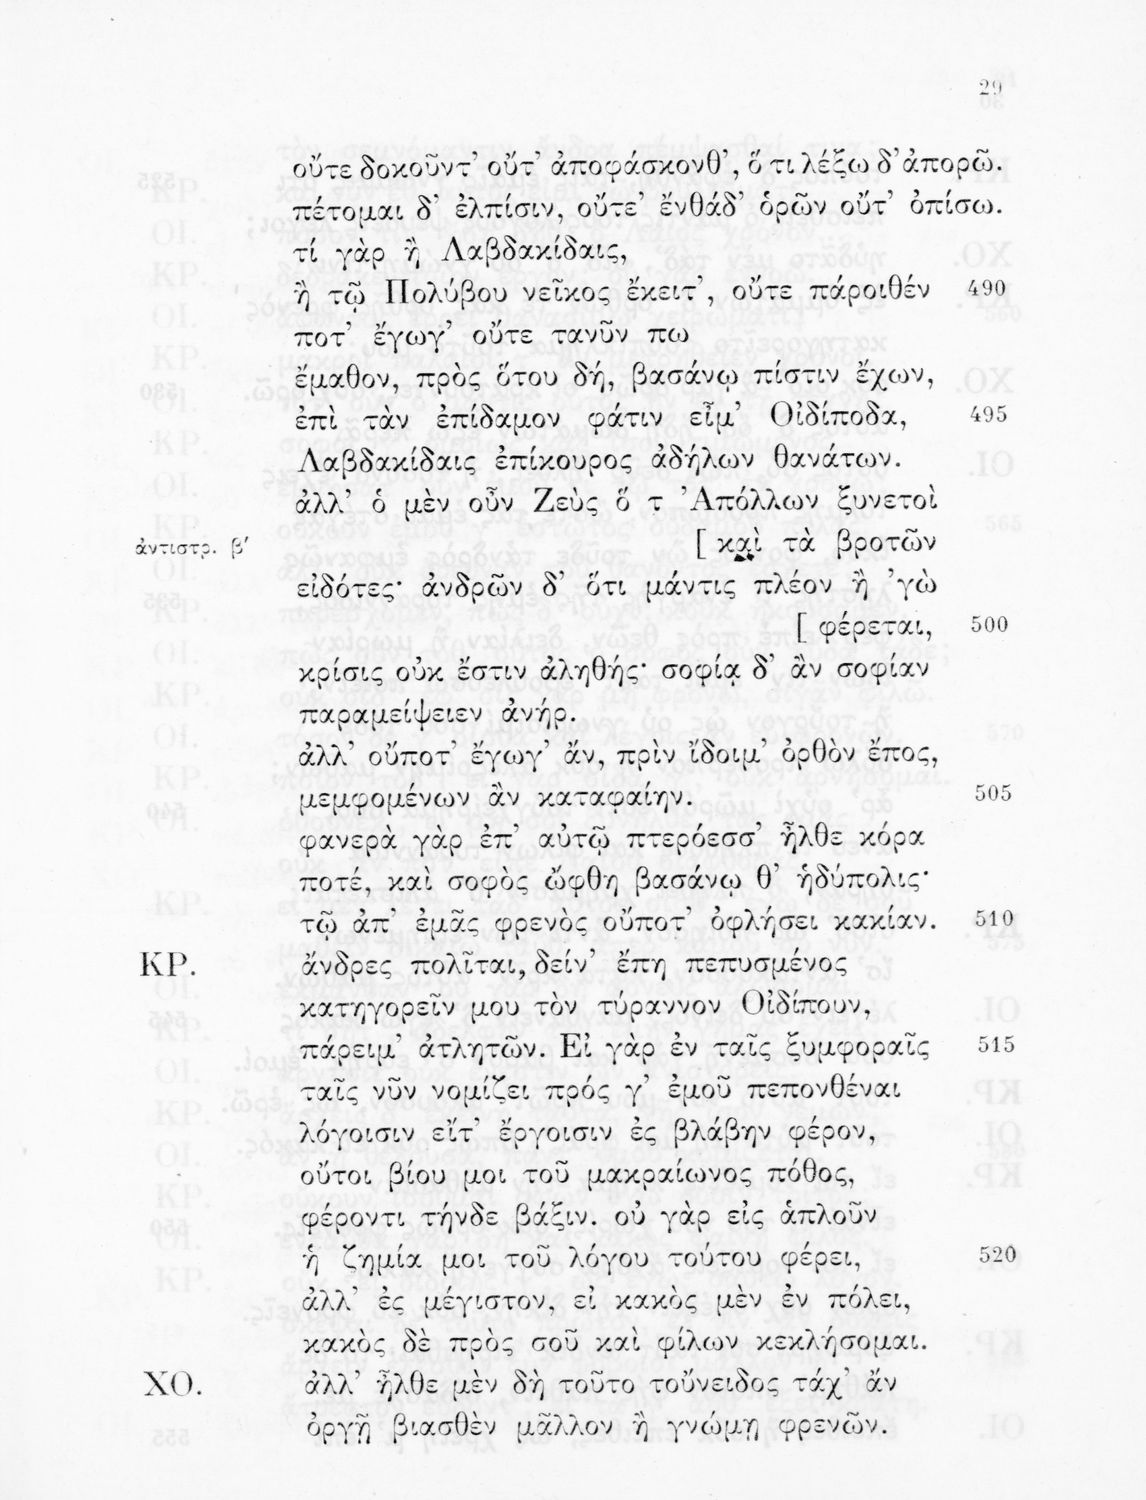 29
οὔτε δοκοῦντ’ οὔτ’ ἀποφάσκονθ’, ὅ τι λέξω δ’ ἀπορῶ.
πέτομαι δ’ ἐλπίσιν, οὔτε’ ἔνθάδ’ ὁρῶν οὔτ’ ὀπίσω.
τί γὰρ ἢ Λαβδακίδαις,
ἢ τῷ Πολύβου νεῖκος ἔκειτ’, οὔτε πάροιθέν 490
ποτ’ ἔγωγ’ οὔτε τανῦν πω
ἔμαθον, πρὸς ὅτου δή, βασάνῳ πίστιν ἔχων,
ἐπὶ τὰν ἐπίδαμον φάτιν εἶμ’ Οἰδίποδα, 495
Λαβδακίδαις ἐπίκουρος ἀδήλων θανάτων.
ἀλλ’ ὁ μὲν οὖν Ζεὺς ὅ τ ’Απόλλων ξυνετοὶ
ἀντιστρ. β′ [ καὶ τὰ βροτῶν
εἰδότες· ἀνδρῶν δ’ ὅτι μάντις πλέον ἢ ’γὼ
[ φέρεται, 500
κρίσις οὐκ ἔστιν ἀληθής· σοφίᾳ δ’ ἂν σοφίαν
παραμείψειεν ἀνήρ.
ἀλλ’ οὔποτ’ ἔγωγ’ ἄν, πρὶν ἴδοιμ’ ὀρθὸν ἔπος,
μεμφομένων ἂν καταφαίην. 505
φανερὰ γὰρ ἐπ’ αὐτῷ πτερόεσσ’ ἦλθε κόρα
ποτέ, καὶ σοφὸς ὤφθη βασάνῳ θ’ ἡδύπολις·
τῷ ἀπ’ ἐμᾶς φρενὸς οὔποτ’ ὀφλήσει κακίαν. 510
ΚΡ. ἄνδρες πολῖται, δείν’ ἔπη πεπυσμένος
κατηγορεῖν μου τὸν τύραννον Οἰδίπουν,
πάρειμ’ ἀτλητῶν. Εἰ γὰρ ἐν ταῖς ξυμφοραῖς 515
ταῖς νῦν νομίζει πρός γ’ ἐμοῦ πεπονθέναι
λόγοισιν εἴτ’ ἔργοισιν ἐς βλάβην φέρον,
οὔτοι βίου μοι τοῦ μακραίωνος πόθος,
φέροντι τήνδε βάξιν. οὐ γὰρ εἰς ἁπλοῦν
ἡ ζημία μοι τοῦ λόγου τούτου φέρει, 520
ἀλλ’ ἐς μέγιστον, εἰ κακὸς μὲν ἐν πόλει,
κακὸς δὲ πρὸς σοῦ καὶ φίλων κεκλήσομαι.
ΧΟ. ἀλλ’ ἦλθε μὲν δὴ τοῦτο τοὔνειδος τάχ’ ἄν
ὀργῇ βιασθὲν μᾶλλον ἢ γνώμῃ φρενῶν.